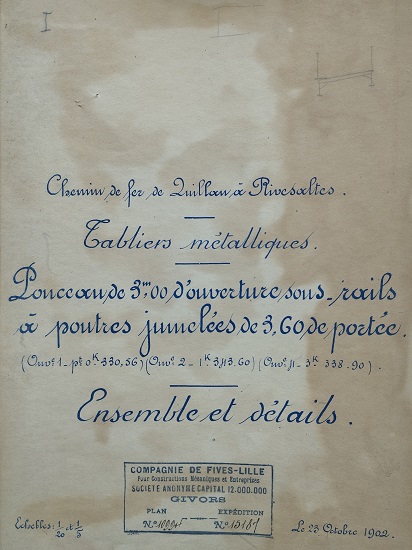 I
Chemin de fer de Quillan à Rivesaltes.
Tabliers métalliques.
Ponceau de 3m00 d'ouverture sous-rails
à poutres jumelées de 3,60 de portée.
Ensemble et détails.
COMPAGNIE DE FIVES-LILLE
Pour Constructions Mécaniques et Entreprises
SOCIÉTÉ ANONYME CAPITAL 12.000.000
GIVORS
PLAN EXPÉDITION
Nº Nº
Echelles: 1/20 et 1/5
Le 23 Octobre 1902.